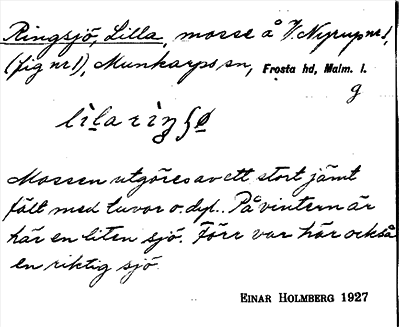 Ringsjö, Lilla, mosse å V. Nyrup nr 1,
(fig nr 1), Munkarps sn, Frosta hd, Malm. l.
g
lilariŋʃø
Mossen utgöres av ett stort jämt
fält med tuvor o. dyl.. På vintern är
här en liten sjö. Förr var här också
en riktig sjö
EINAR HOLMBERG 1927